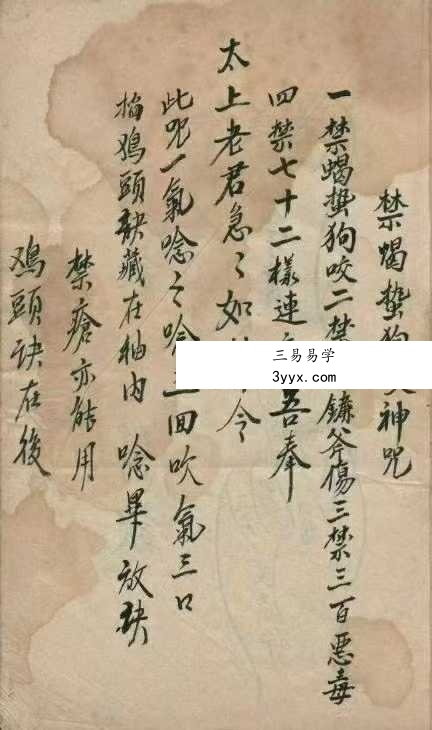 禁蝎蜇狗神咒
一禁蝎蜇狗咬二禁鐮斧傷三禁三百惡毒
四禁七十二樣連吾奉
太上老君急〻如令
此咒一氣唸之唸回吹氣三口
掐鸡頭訣藏在袖内 唸畢放訣
禁瘡亦能用
鸡頭訣在後
三易易学
3yyx.com